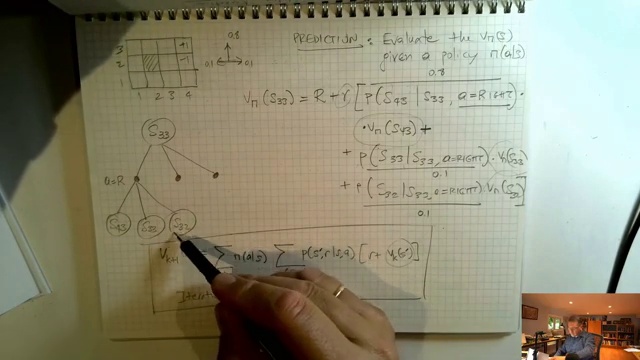 3
2
1
1 2 3 4
+1
-1
0.8
0.1
0.1
PREDICTION : Evaluate the Vπ(s)
given a policy π(a|s)
0.8
Vπ(S33) = R + γ [ p(S43 | S33, a=RIGHT) ·
· Vπ(S43) +
+ p(S33 | S33, a=RIGHT) · Vπ(S33)
0.1
+ p(S32 | S33, a=RIGHT) · Vπ(S32) ]
0.1
S33
a=R
S43 S33 S32
Vk+1 Σ π(a|s) Σ p(s',r|s,a) [r + Vk(s')]